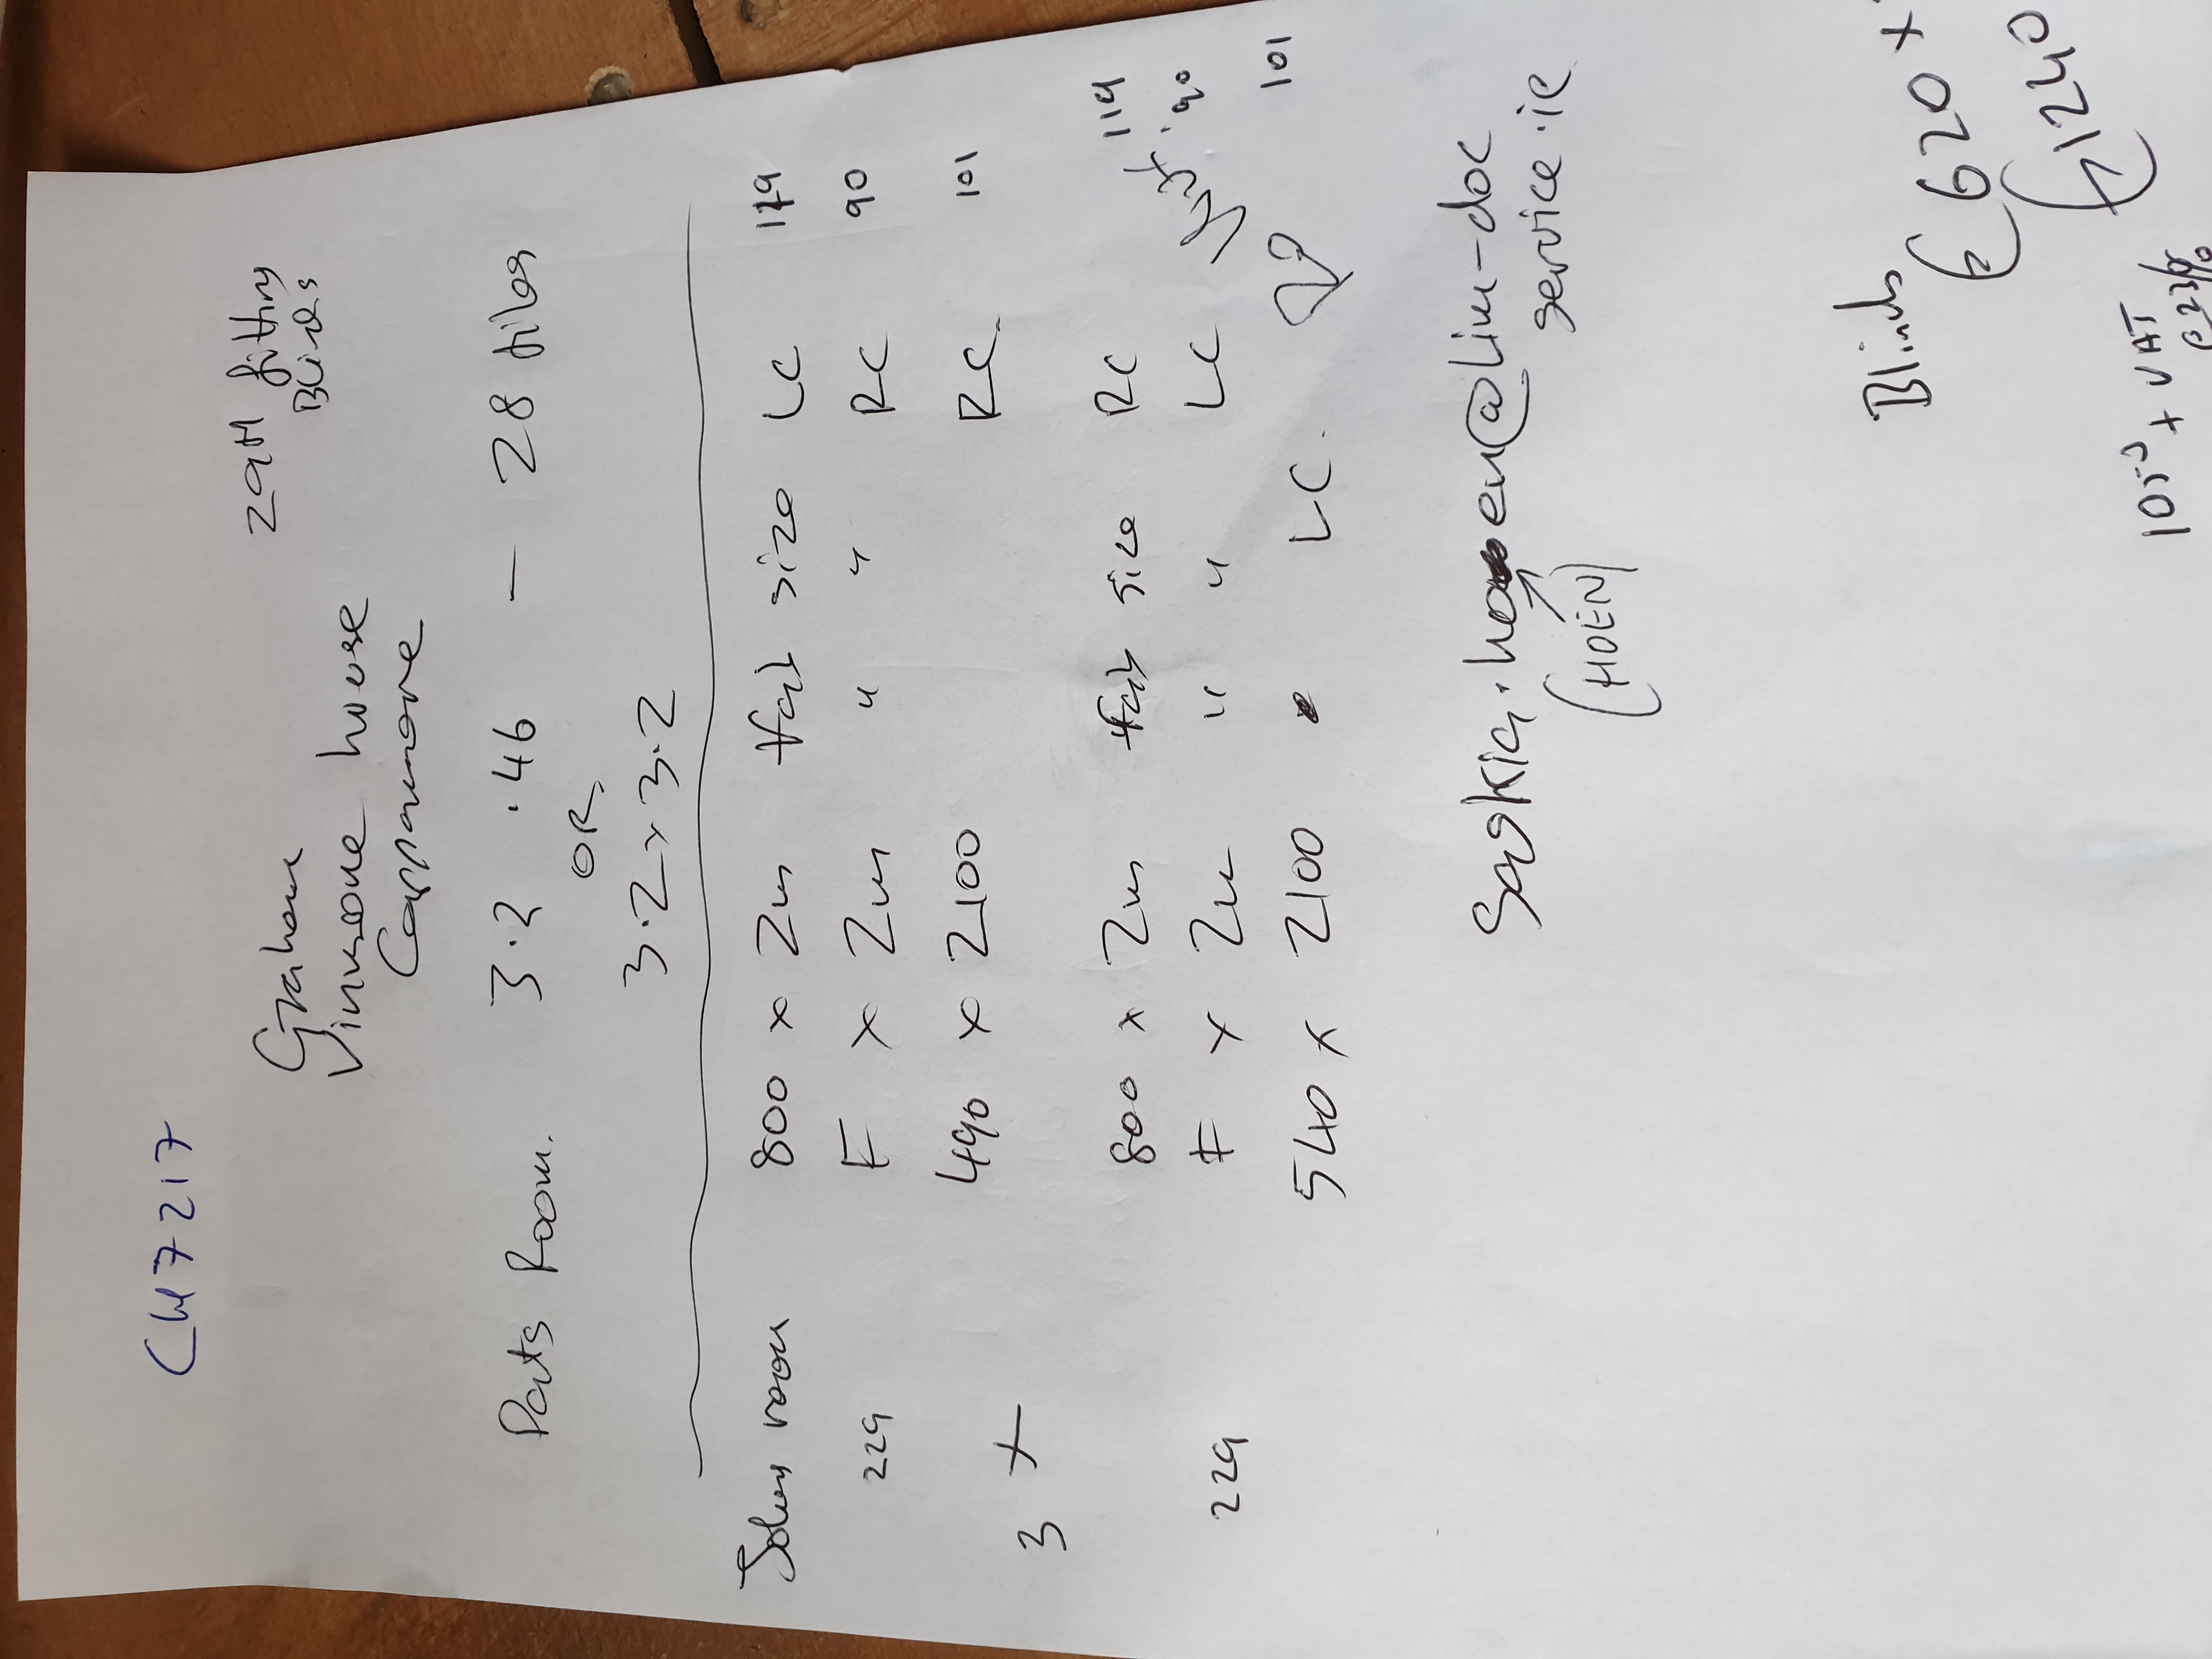 CH7217
Graham 29th fitting
Vinurone house Blinds
Cappamore
Pats Room. 3.2 .46 — 28 tiles
OR
3.2 x 3.2
Johns room 800 x 2m fab size LC 179
229 F x 2m " " RC 90
490 x 2100 RC. 101
3 x
800 x 2m fab size RC 119
229 F x 2m " " LC 90
540 x 2100 LC. 101
Saskia.hoen@lim-doc
(HOEN) service.ie
Blinds € 620 +
€1240
+ VAT